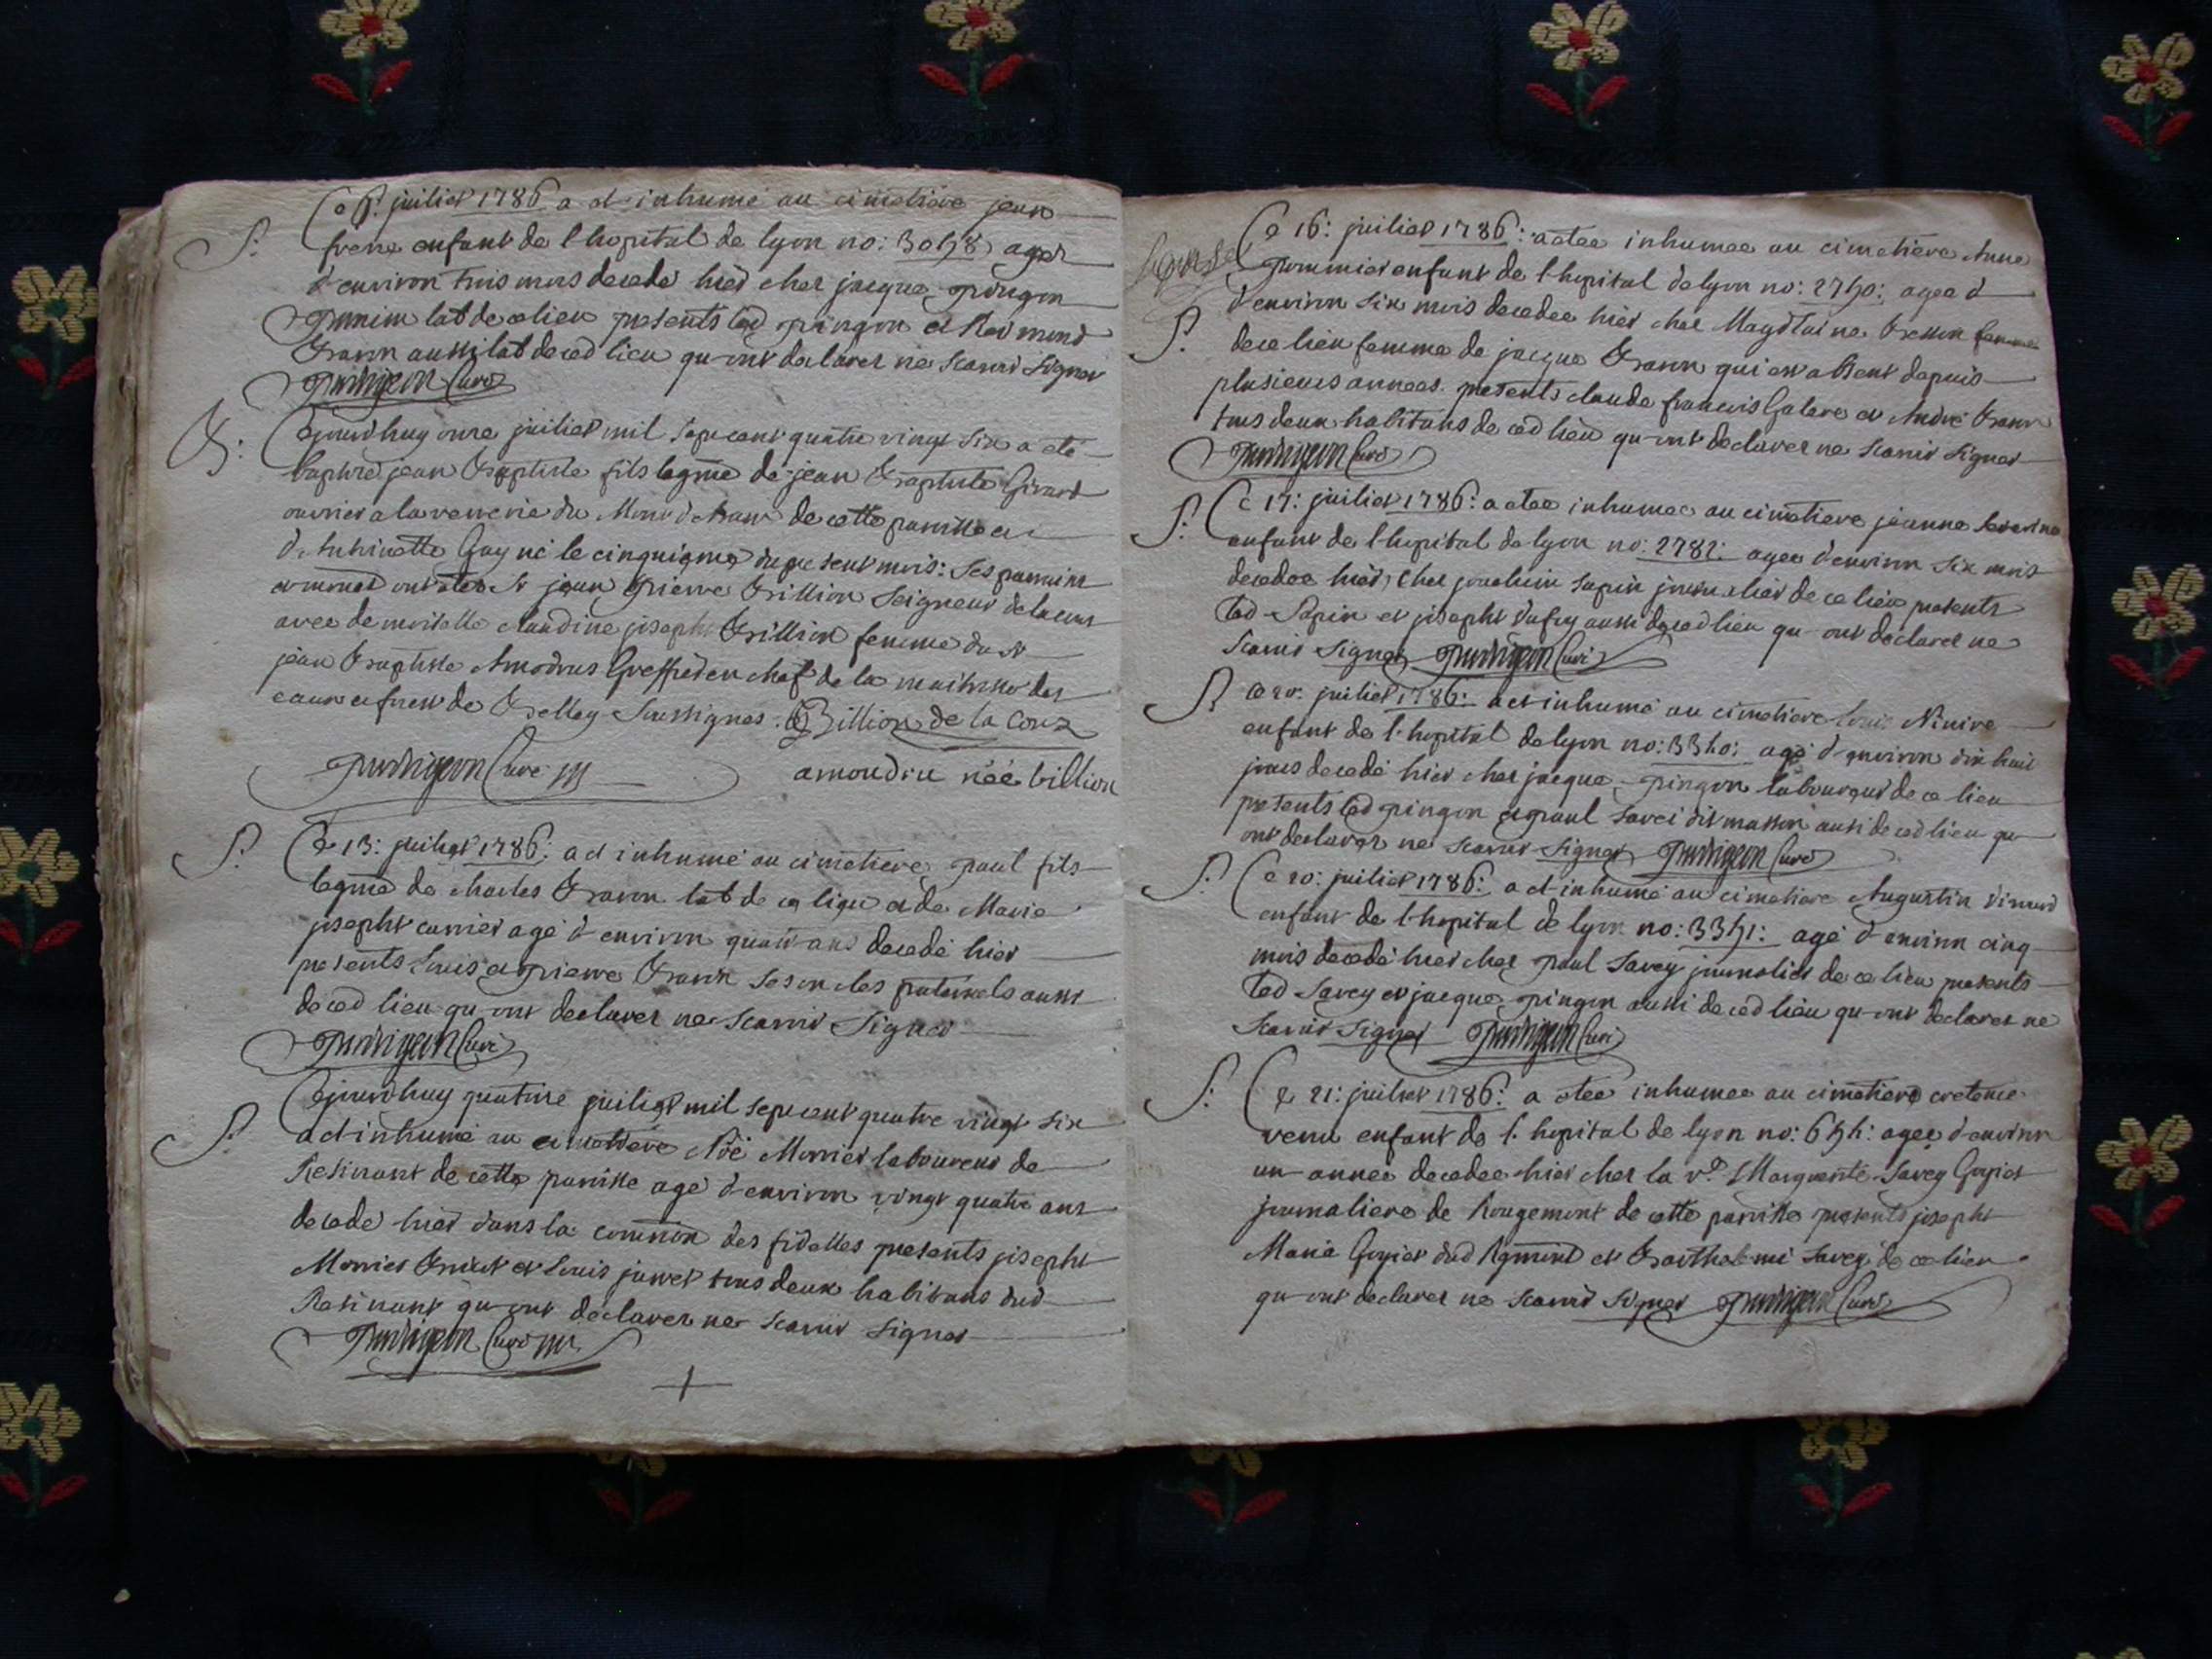 S:
Ce juillet 1786 a et inhumé au cimetiere jean
frere enfant de l'hopital de lyon no: agé
d'environ trois mois decedé hier chez jacque pingon
lab de ce lieu presents led pingon et Reimond
aussi lab de ced lieu qu-ont declarer ne scavoir signer
Curé
B:
Cejourdhuy onze juillet mil sept cent quatre vingt six a eté
baptisé jean Baptiste fils legme de jean Baptiste Girard
ouvrier a la verrerie du de cette paroisse et
d'Anthinette Guy né le cinquieme du present mois: ses parrain
et ont etes Sr jean Pierre Billion Seigneur de la
avec demoiselle claudine joseph Billion femme du Sr
jean Baptiste Amodrus Greffier en chef de la maitrise des
eaux et forest de Belley Soussignes. Billion de la
Curé amoudru née billion
S:
Ce 13: juillet 1786: a et inhumé au cimetiere paul fils
legme de charles lab de ce lieu et de Marie
josepht agé d'environ quatre ans decedé hier
presents Louis et pierre ses oncles paternels aussi
de ced lieu qu-ont declarer ne scavoir signer
Curé
S:
Cejourdhuy quatorze juillet mil sept cent quatre vingt six
a et inhumé au cimetiere Noë Monier laboureur de
Resinant de cette paroisse agé d'environ vingt quatre ans
decedé hier dans la comunion des fidelles presents josepht
Monier et Louis juvet tous deux habitans dud
Resinant qu-ont declarer ne scavoir signer
Curé
Ce 16: juillet 1786: a etee inhumee au cimetiere Anne
enfant de l-hopital de lyon no: agee d
S:
d'environ six mois decedee hier chez Magdlaine femme
de ce lieu femme de jacque qui est absent depuis
plusieurs annees. presents claude francois Galare et André
tous deux habitans de ced lieu qu-ont declarer ne scavoir signer
Curé
S:
Ce 17: juillet 1786: a etee inhumee au cimetiere jeanne
enfant de l-hopital de lyon no: 2782: agee d'environ six mois
decedee hier chez joachim Sapin journalier de ce lieu presents
led Sapin et josepht aussi de ced lieu qu-ont declarer ne
scavoir signer Curé
S:
Ce 20: juillet 1786: a et inhumé au cimetiere Louis Ninire
enfant de l-hopital de lyon no: agé d'environ dix huit
jours decedé hier chez jacque pingon laboureur de ce lieu
presents led pingon et paul Savei dit masson aussi de ced lieu qu
ont declarer ne scavoir signer Curé
S:
Ce 20: juillet 1786: a et inhumé au cimetiere Augustin
enfant de l-hopital de lyon no: agé d'environ cinq
mois decedé hier chez paul Savey journalier de ce lieu presents
led Savey et jacque pingon aussi de ced lieu qu-ont declarer ne
scavoir signer Curé
S:
Ce 21: juillet 1786: a etee inhumee au cimetiere
enfant de l-hopital de lyon no: agee d'environ
un annee decedee hier chez la ve Marguerite Savey Goyiet
journaliere de Rougemont de cette paroisse presents josepht
Marie Goyiet dud et Barthelemi Savey de ce lieu
qu-ont declarer ne scavoir signer Curé